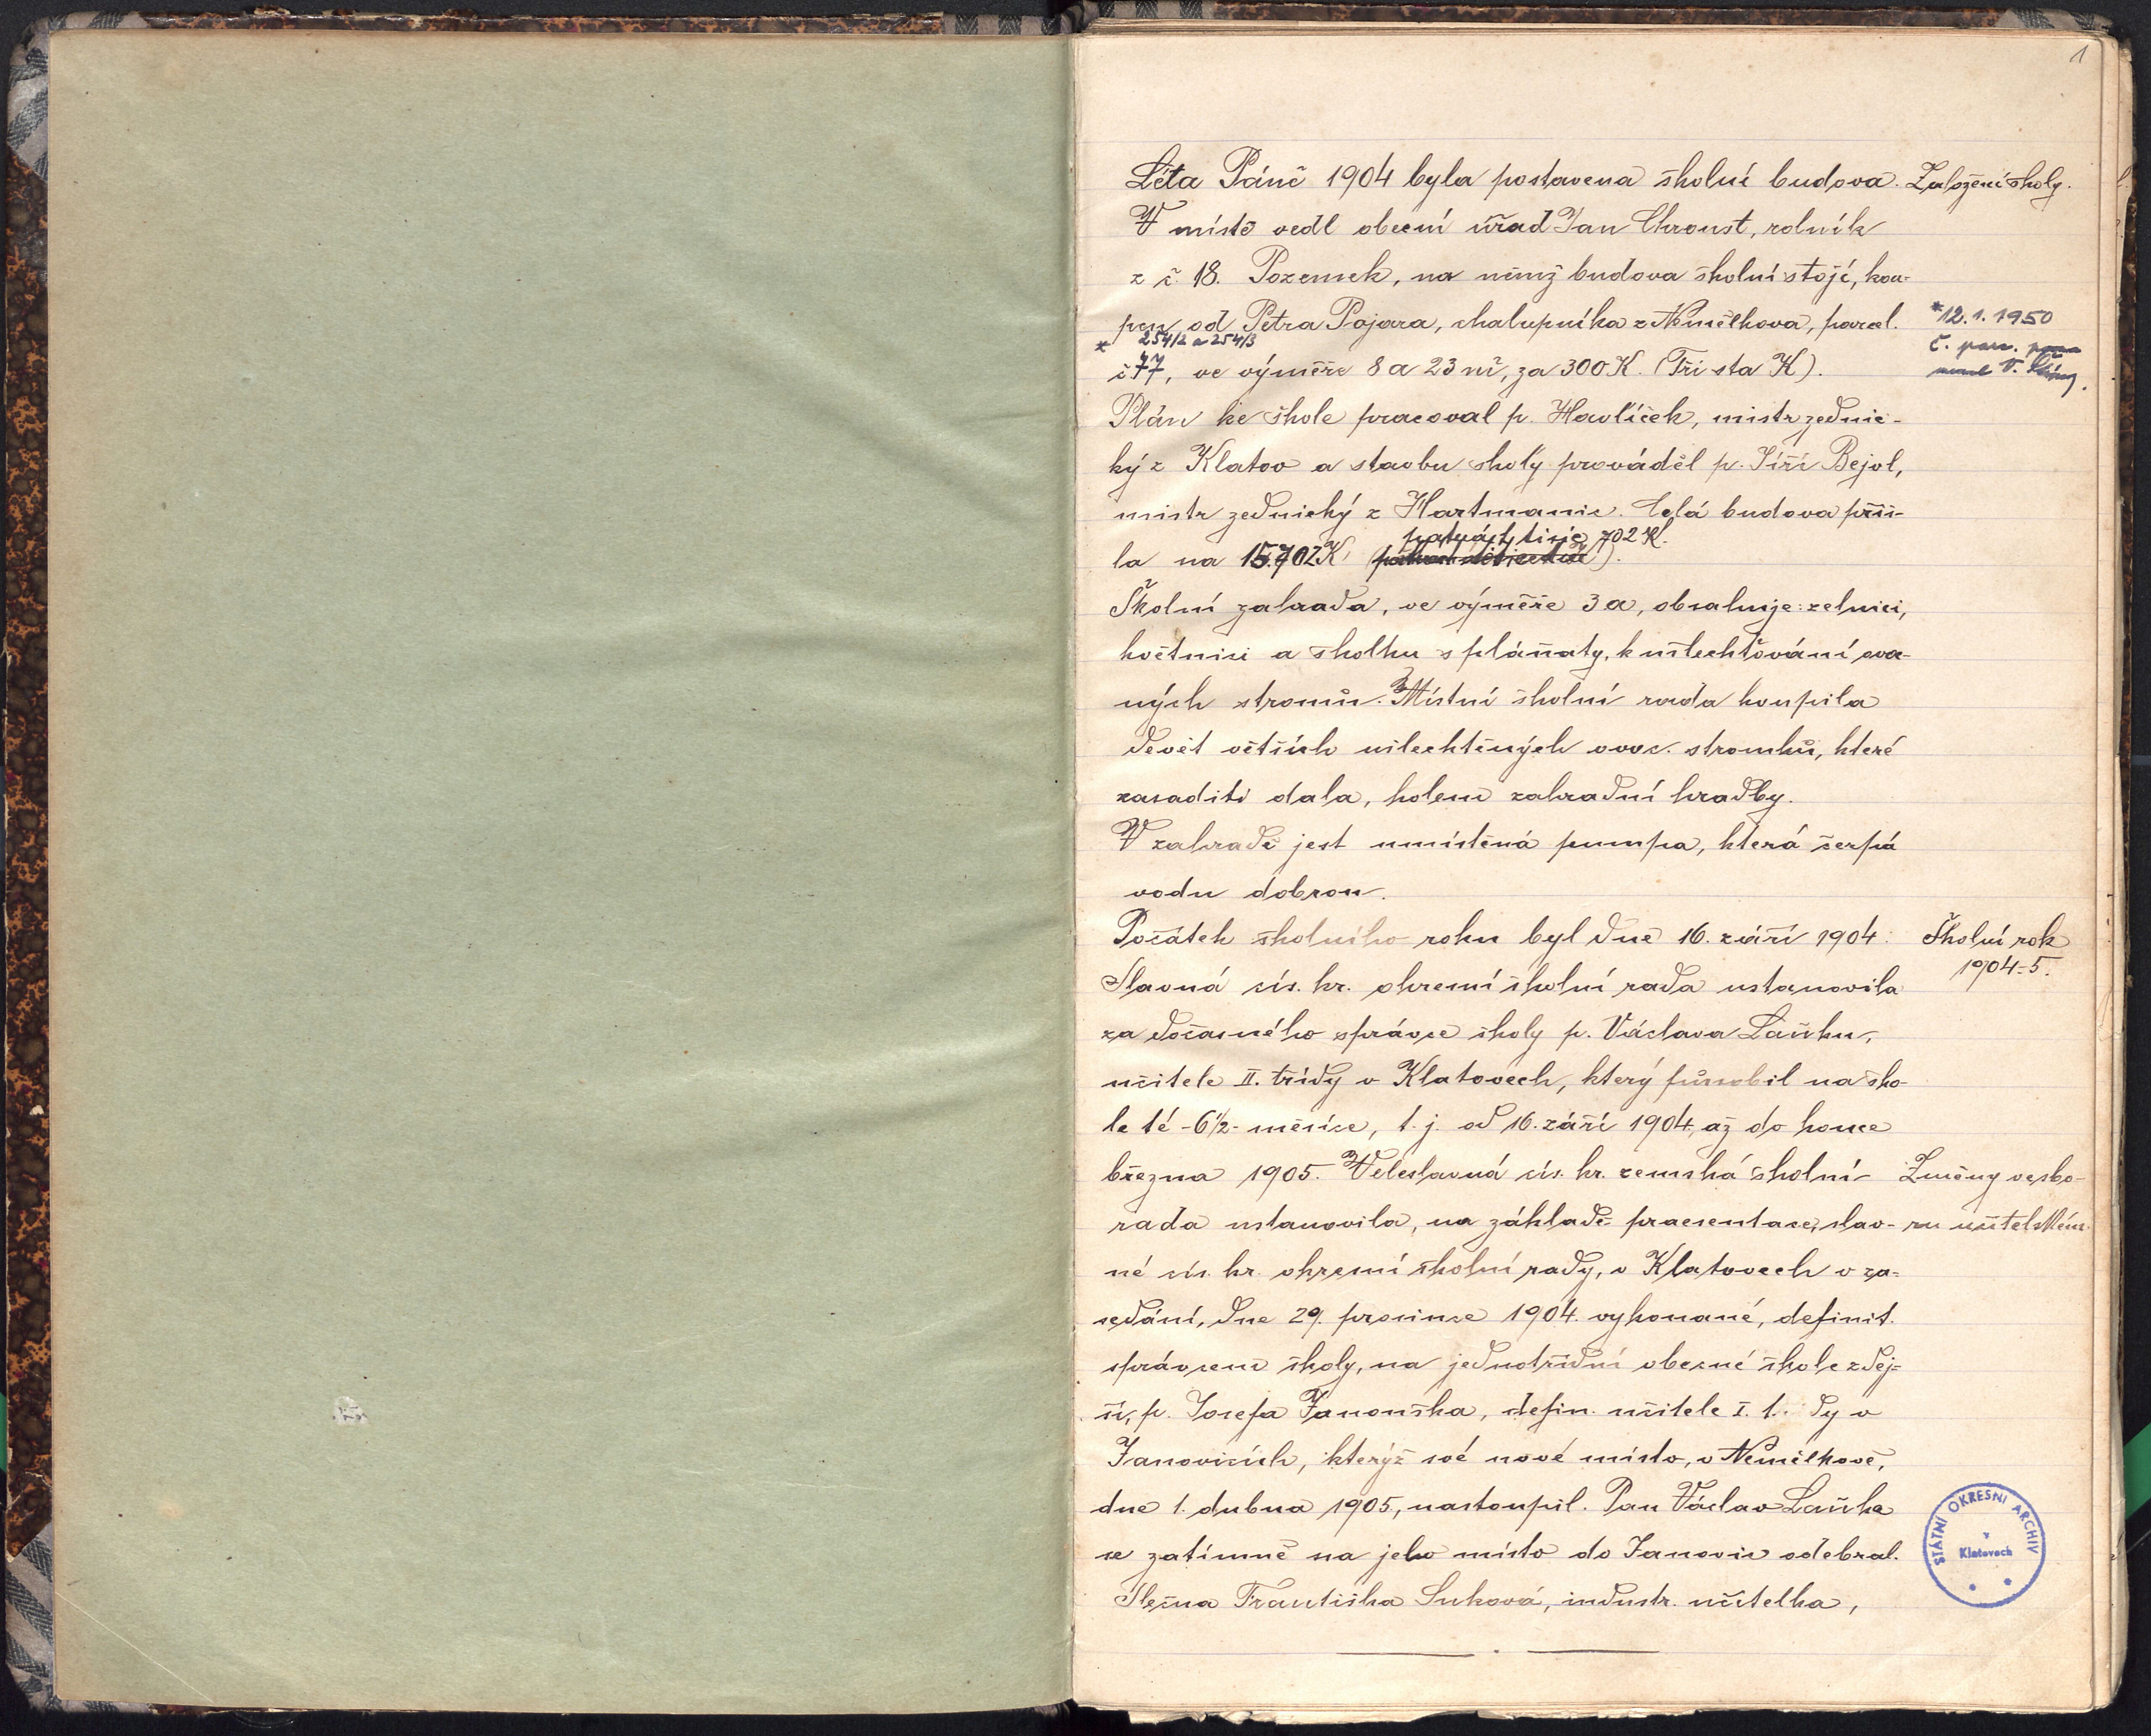 1
Léta Páně 1904 byla postavena školní budova. Založení školy.
V místě vedl obecní úřad Jan Chroust, rolník
z č. 18. Pozemek, na němž budova školní stojí, kou-
pen od Petra Pojara, chalupníka z Nemilkova, parcel. *12.1.1950
* 254/2 a 254/3
č. parc.
č 77, ve výměře 8 a 23 m², za 300 K. (Tři sta K).
Plán ke škole pracoval p. Havlíček, mistr zednic-
ký z Klatov a stavbu školy prováděl p. Jiří Bejol,
mistr zednický z Hartmanic. Celá budova přii-
patnáct tisíc 702 K.
la na 15.702 K
Školní zahrada, ve výměře 3 a, obsahuje: zelnici,
květnici a školku s pláňaty, k ušlechťování ovo-
ných stromů. Místní školní rada koupila
devět větších ušlechtěných ovoc. stromků, které
zasaditi dala, kolem zahradní hradby.
V zahradě jest umístěná pumpa, která čerpá
vodu dobrou.
Počátek školního roku byl dne 16. září 1904. Školní rok
1904-5.
Slavná cís. kr. okresní školní rada ustanovila
za dočasného správce školy p. Václava Laňku,
učitele II. třídy v Klatovech, který působil na ško-
le té -6½- měsíce, t. j. od 16. září 1904, až do konce
března 1905. Veleslavná cís. kr. zemská školní Změny ve sbo-
rada ustanovila, na základě praesentace, slav- ru učitelském.
né cís. kr. okresní školní rady, v Klatovech v za-
sedání, dne 29. prosince 1904. vykonané, definit.
správcem školy, na jednotřídní obecné škole zdej-
ší, p. Josefa Janouška, defin. učitele I. t. dy v
Janovicích, kterýž své nové místo, v Nemilkově,
dne 1. dubna 1905, nastoupil. Pan Václav Laňka
se zatímně na jeho místo do Janovic odebral.
Slečna Františka Suková, industr. učitelka,
STÁTNÍ OKRESNÍ ARCHIV
v
Klatovech